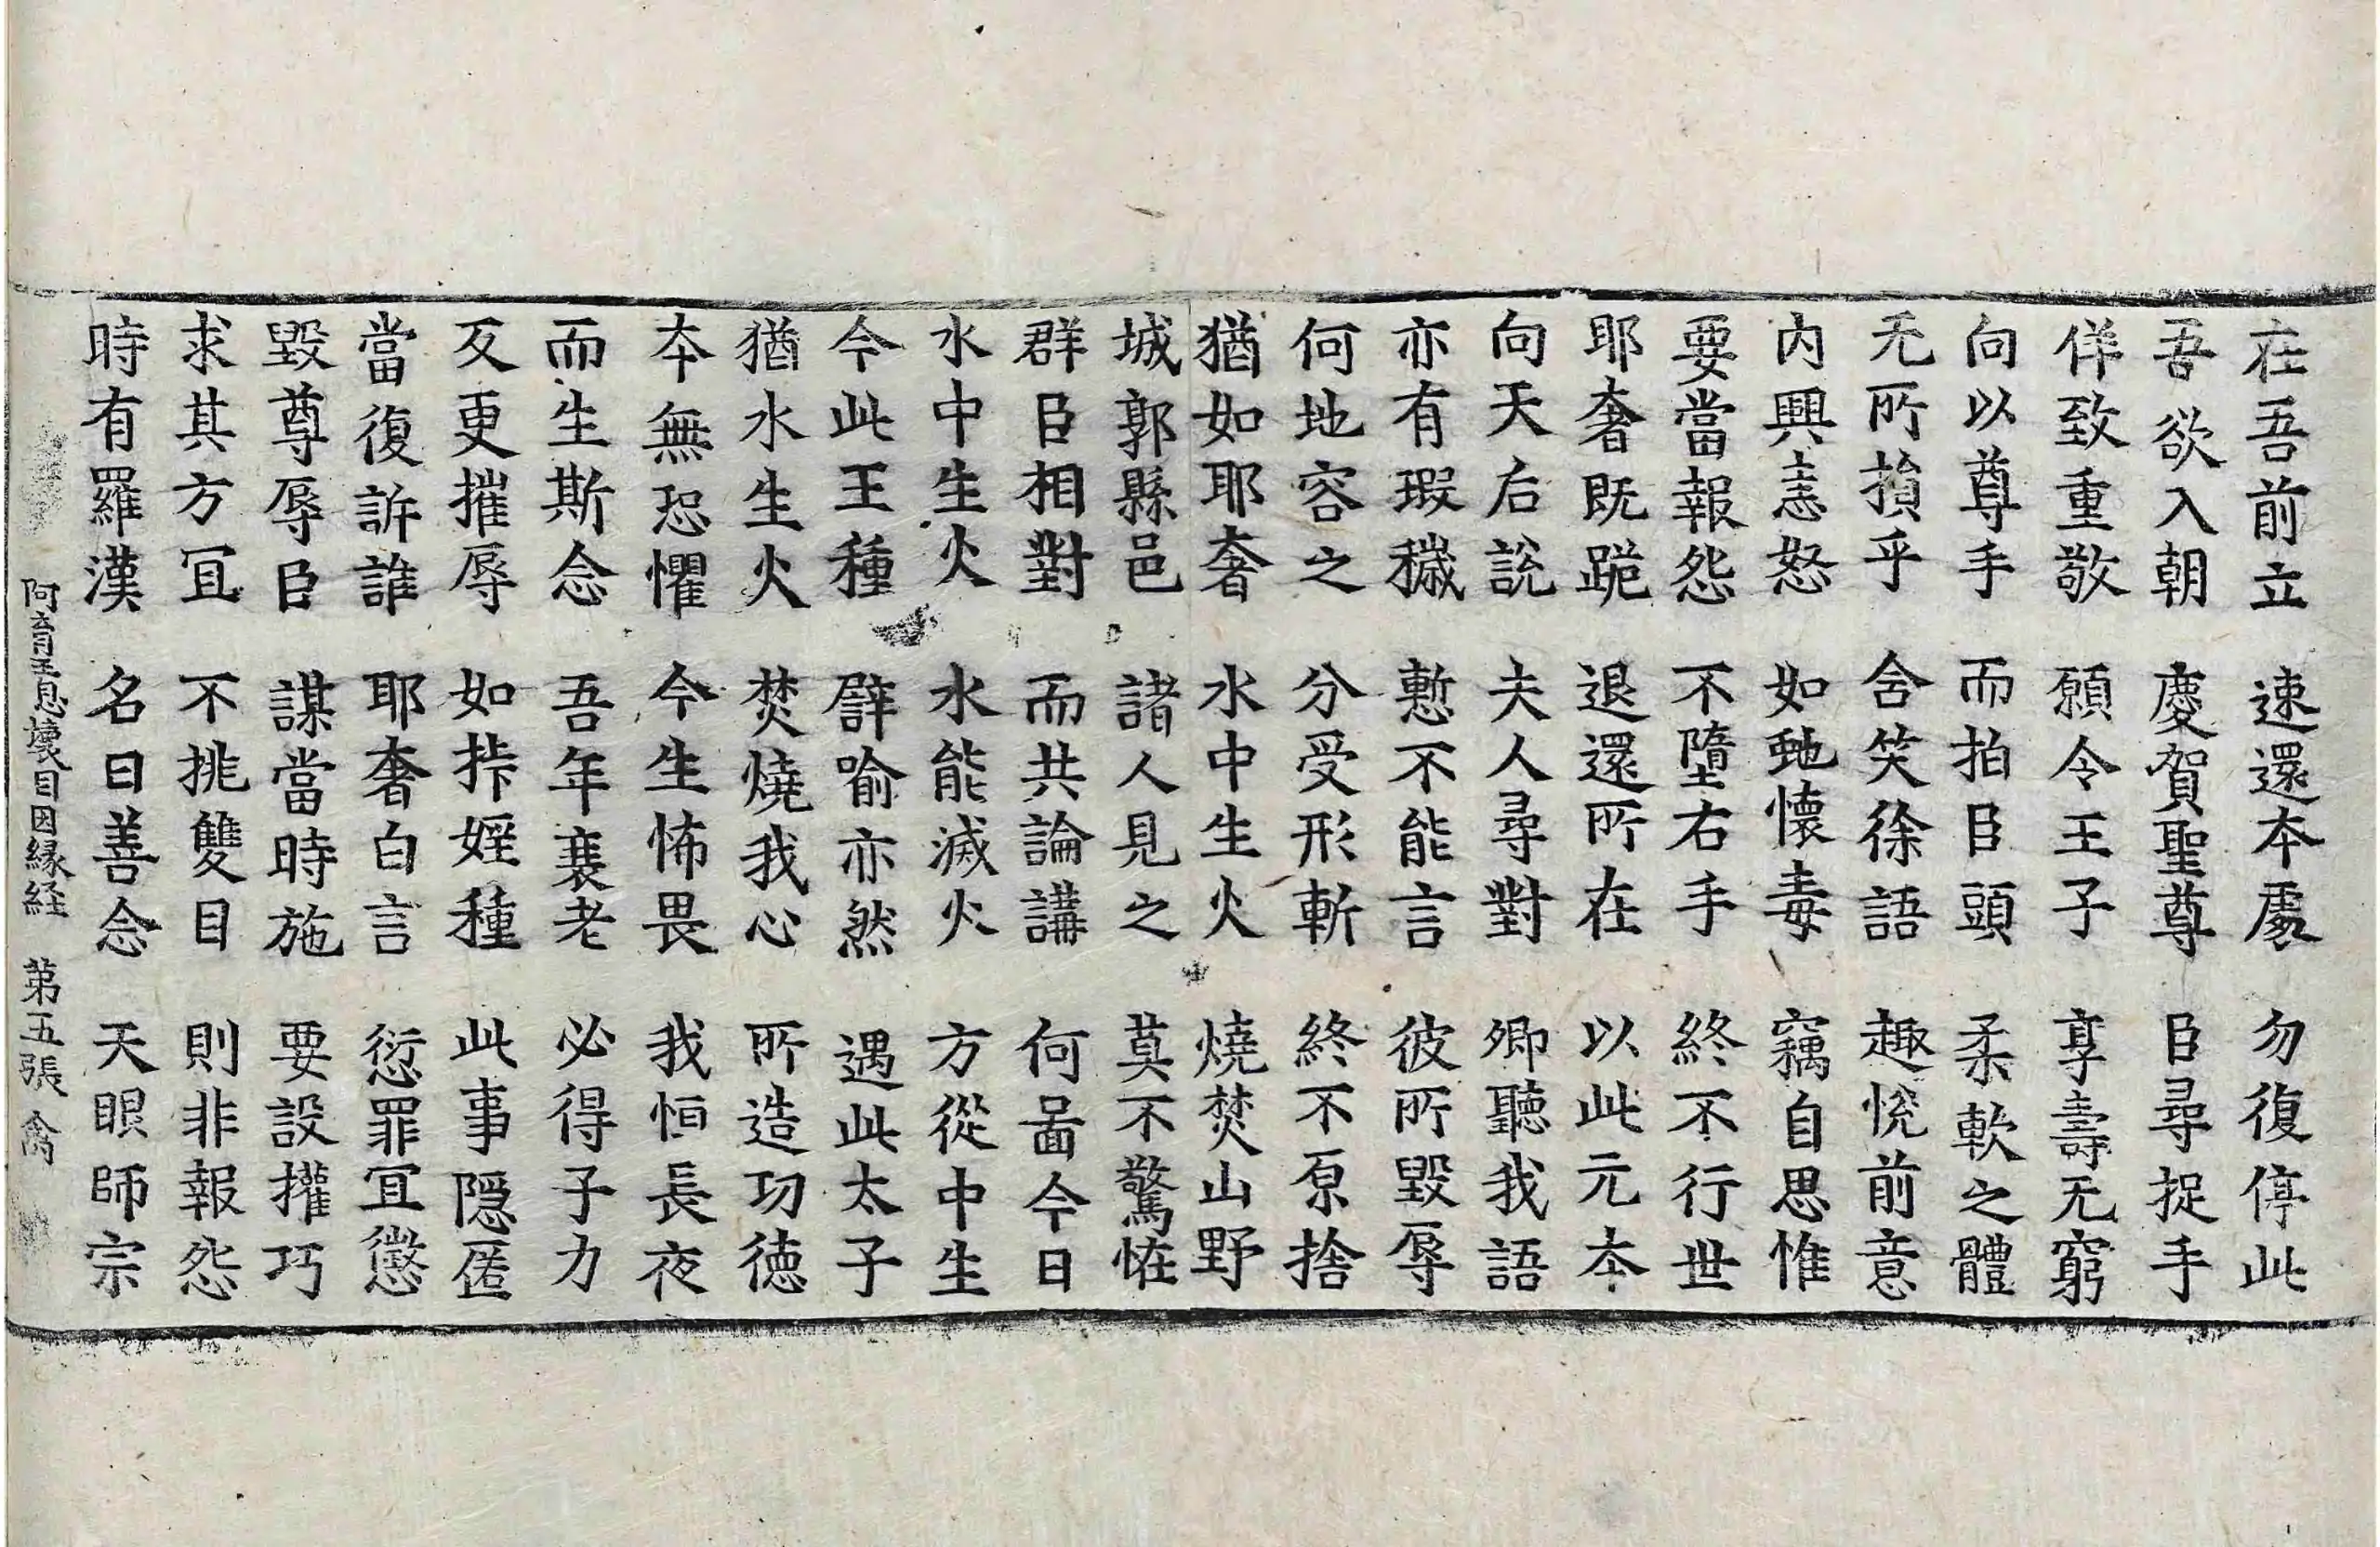 在吾前立　速還本處　勿復停此
吾欲入朝　慶賀聖尊　臣尋捉手
佯致重敬　願令王子　享壽无窮
向以尊手　而拍臣頭　柔軟之體
无所損乎　含笑徐語　趣悅前意
内興恚怒　如虵懷毒　竊自思惟
要當報怨　不墮右手　終不行世
耶奢既跪　退還所在　以此元本
向天后說　夫人尋對　卿聽我語
亦有瑕穢　慙不能言　彼所毀辱
何地容之　分受形斬　終不原捨
猶如耶奢　水中生火　燒焚山野
城郭縣邑　諸人見之　莫不驚恠
群臣相對　而共論講　何啚今日
水中生火　水能滅火　方從中生
今此王種　譬喻亦然　遇此太子
猶水生火　焚燒我心　所造功德
本無恐懼　今生怖畏　我恒長夜
而生斯念　吾年衰老　必得子力
反更摧辱　如㧊婬種　此事隠匿
當復訴誰　耶奢白言　愆罪冝懲
毀尊辱臣　謀當時施　要設攉巧
求其方冝　不挑雙目　則非報怨
時有羅漢　名曰善念　天眼師宗
阿育王息壞目因縁経　第五張　禽